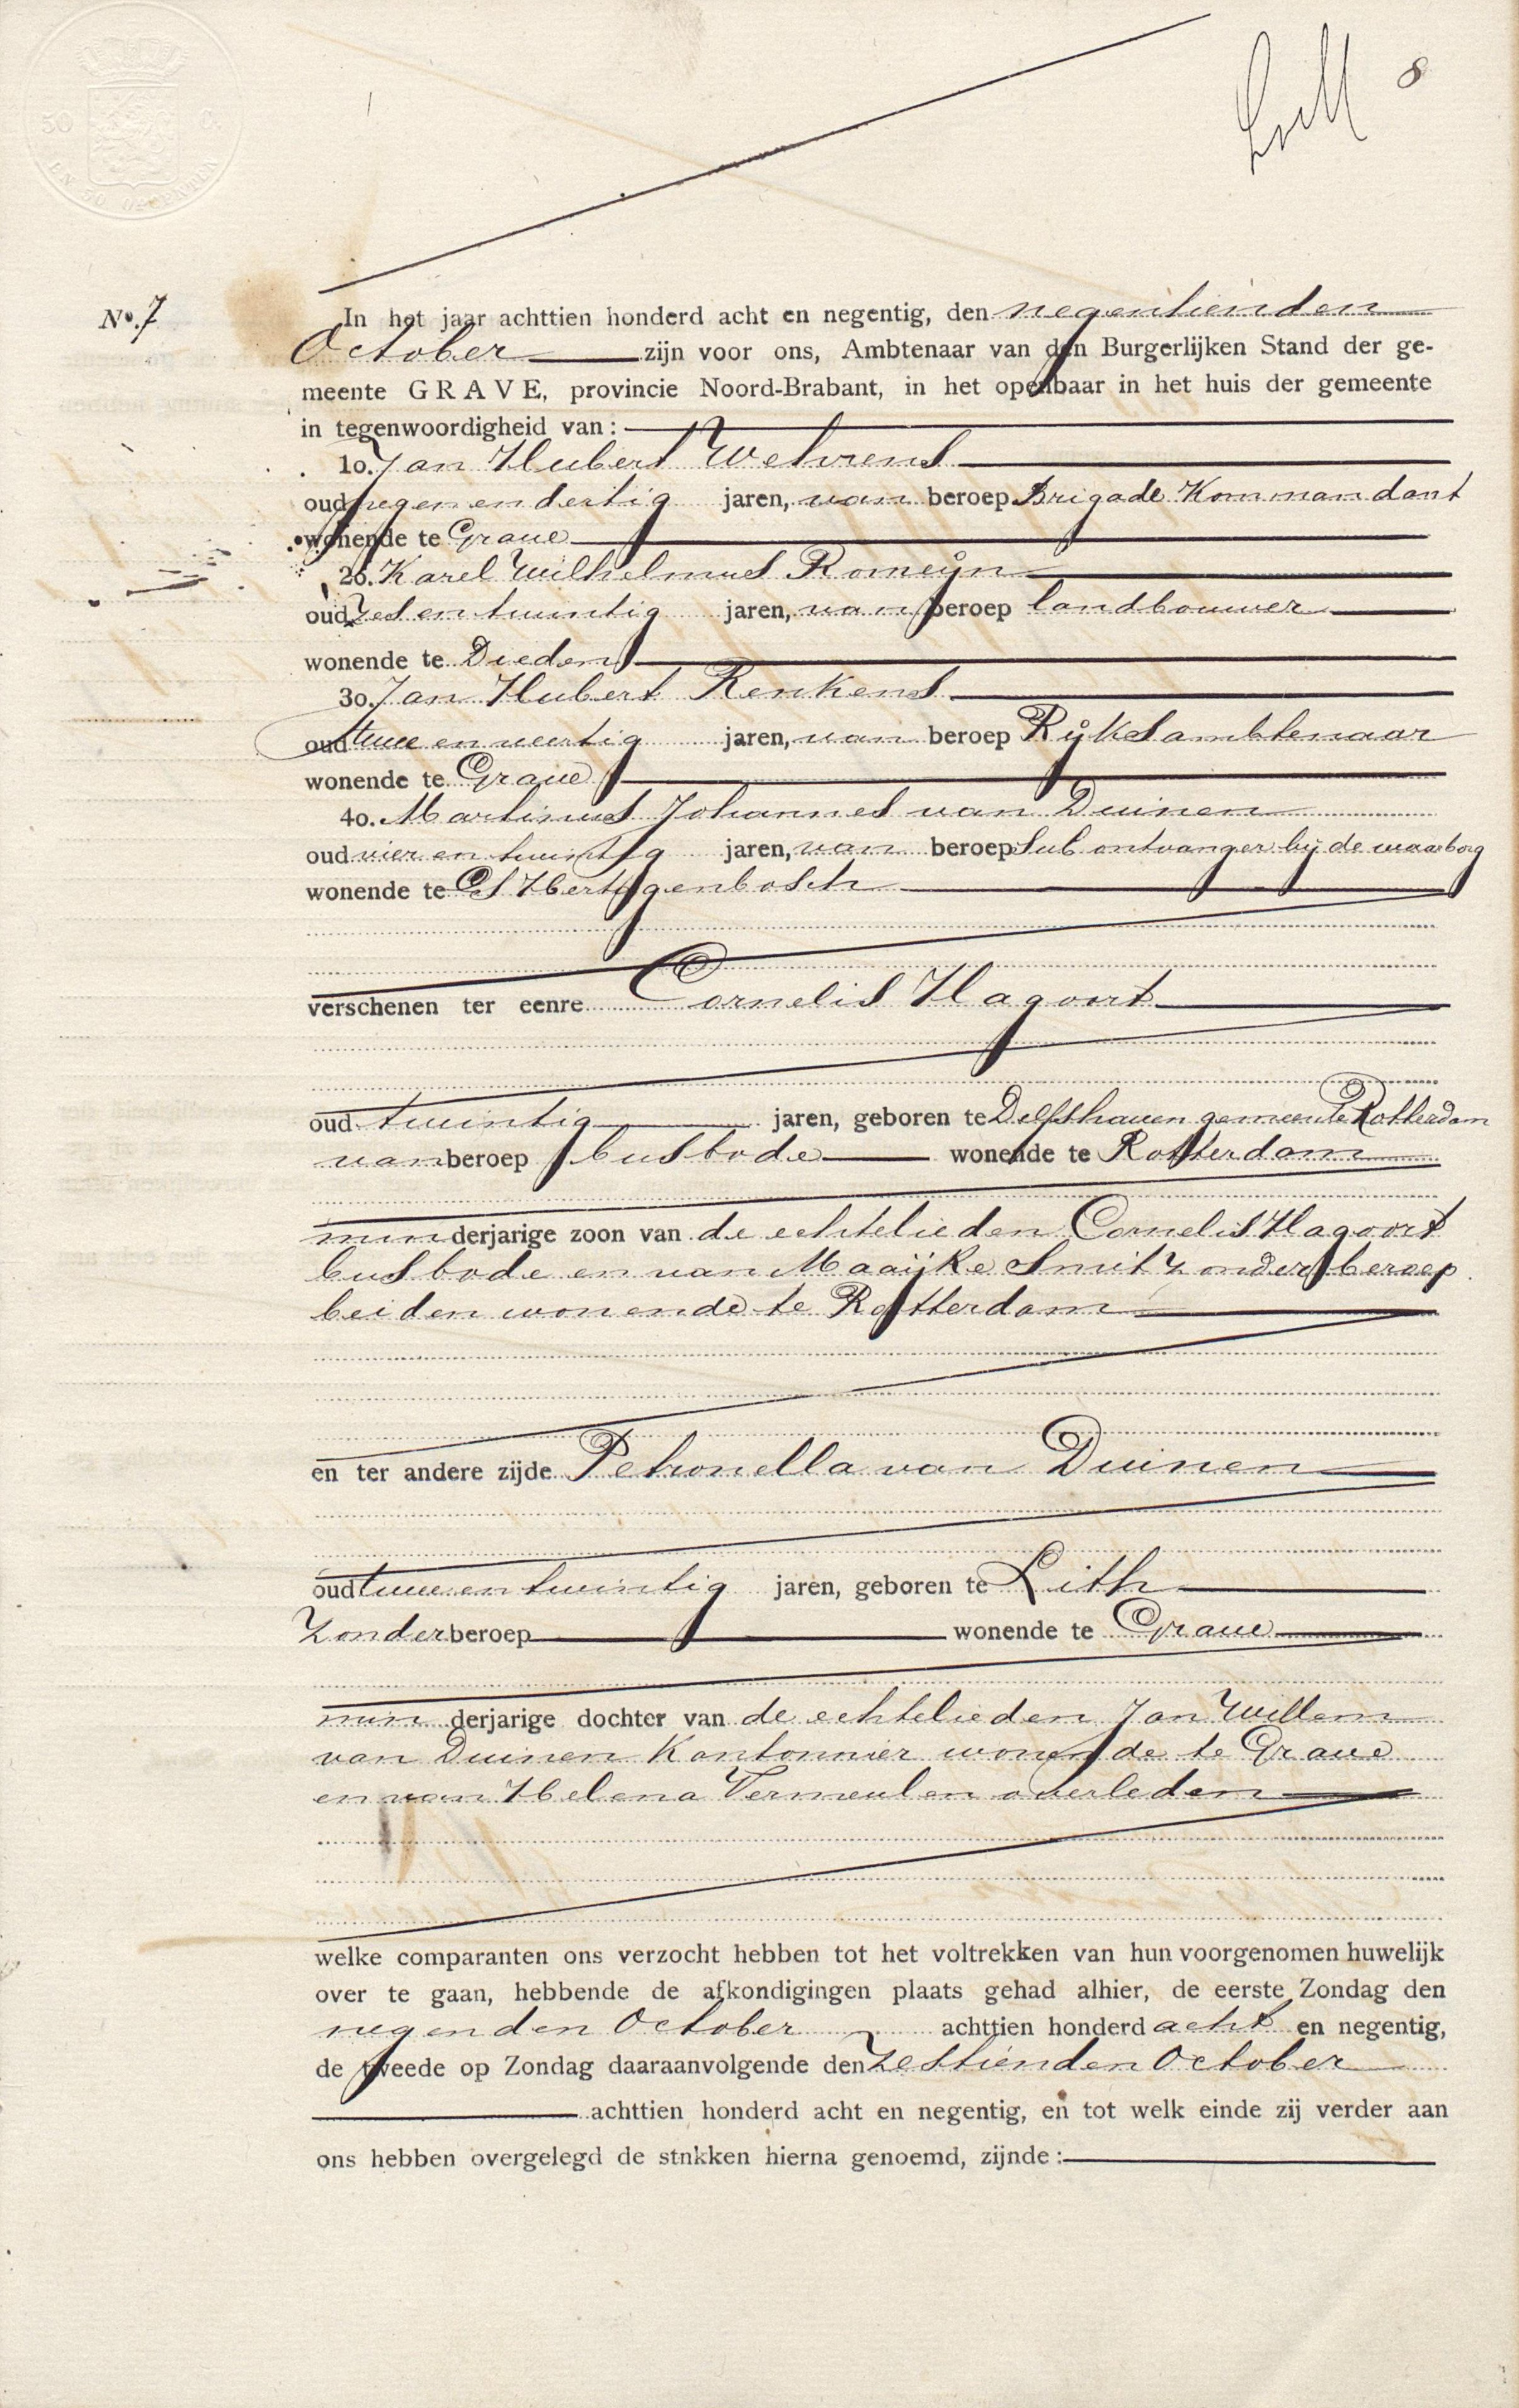 8
No. 7
In het jaar achttien honderd acht en negentig, den negentienden
October zijn voor ons, Ambtenaar van den Burgerlijken Stand der ge-
meente GRAVE, provincie Noord-Brabant, in het openbaar in het huis der gemeente
in tegenwoordigheid van:
1o. Jan Hubert Wehrens
oud negen en dertig jaren, van beroep Brigade Kommandant
wonende te Grave
2o. Karel Wilhelmus Romeijn
oud Zes en twintig jaren, van beroep landbouwer
wonende te Dieden
3o. Jan Hubert Renkens
oud twee en veertig jaren, van beroep Rijks ambtenaar
wonende te Grave
4o. Martinus Johannes van Duinen
oud vier en twintig jaren, van beroep Sub ontvanger bij de waarborg
wonende te 'S Hertogenbosch
verschenen ter eenre Cornelis Hagoort
oud twintig jaren, geboren te Delfshaven gemeente Rotterdam
van beroep busbode wonende te Rotterdam
minderjarige zoon van de echtelieden Cornelis Hagoort
busbode en van Maaijke Smit Zonder beroep
beiden wonende te Rotterdam
en ter andere zijde Petronella van Duinen
oud twee en twintig jaren, geboren te Lith
Zonder beroep wonende te Grave
min derjarige dochter van de echtelieden Jan Willem
van Duinen Kantonnier wonende te Grave
en van Helena Vermeulen overleden
welke comparanten ons verzocht hebben tot het voltrekken van hun voorgenomen huwelijk
over te gaan, hebbende de afkondigingen plaats gehad alhier, de eerste Zondag den
negenden October achttien honderd acht en negentig,
de tweede op Zondag daaraanvolgende den Zestienden October
achttien honderd acht en negentig, en tot welk einde zij verder aan
ons hebben overgelegd de stnkken hierna genoemd, zijnde: